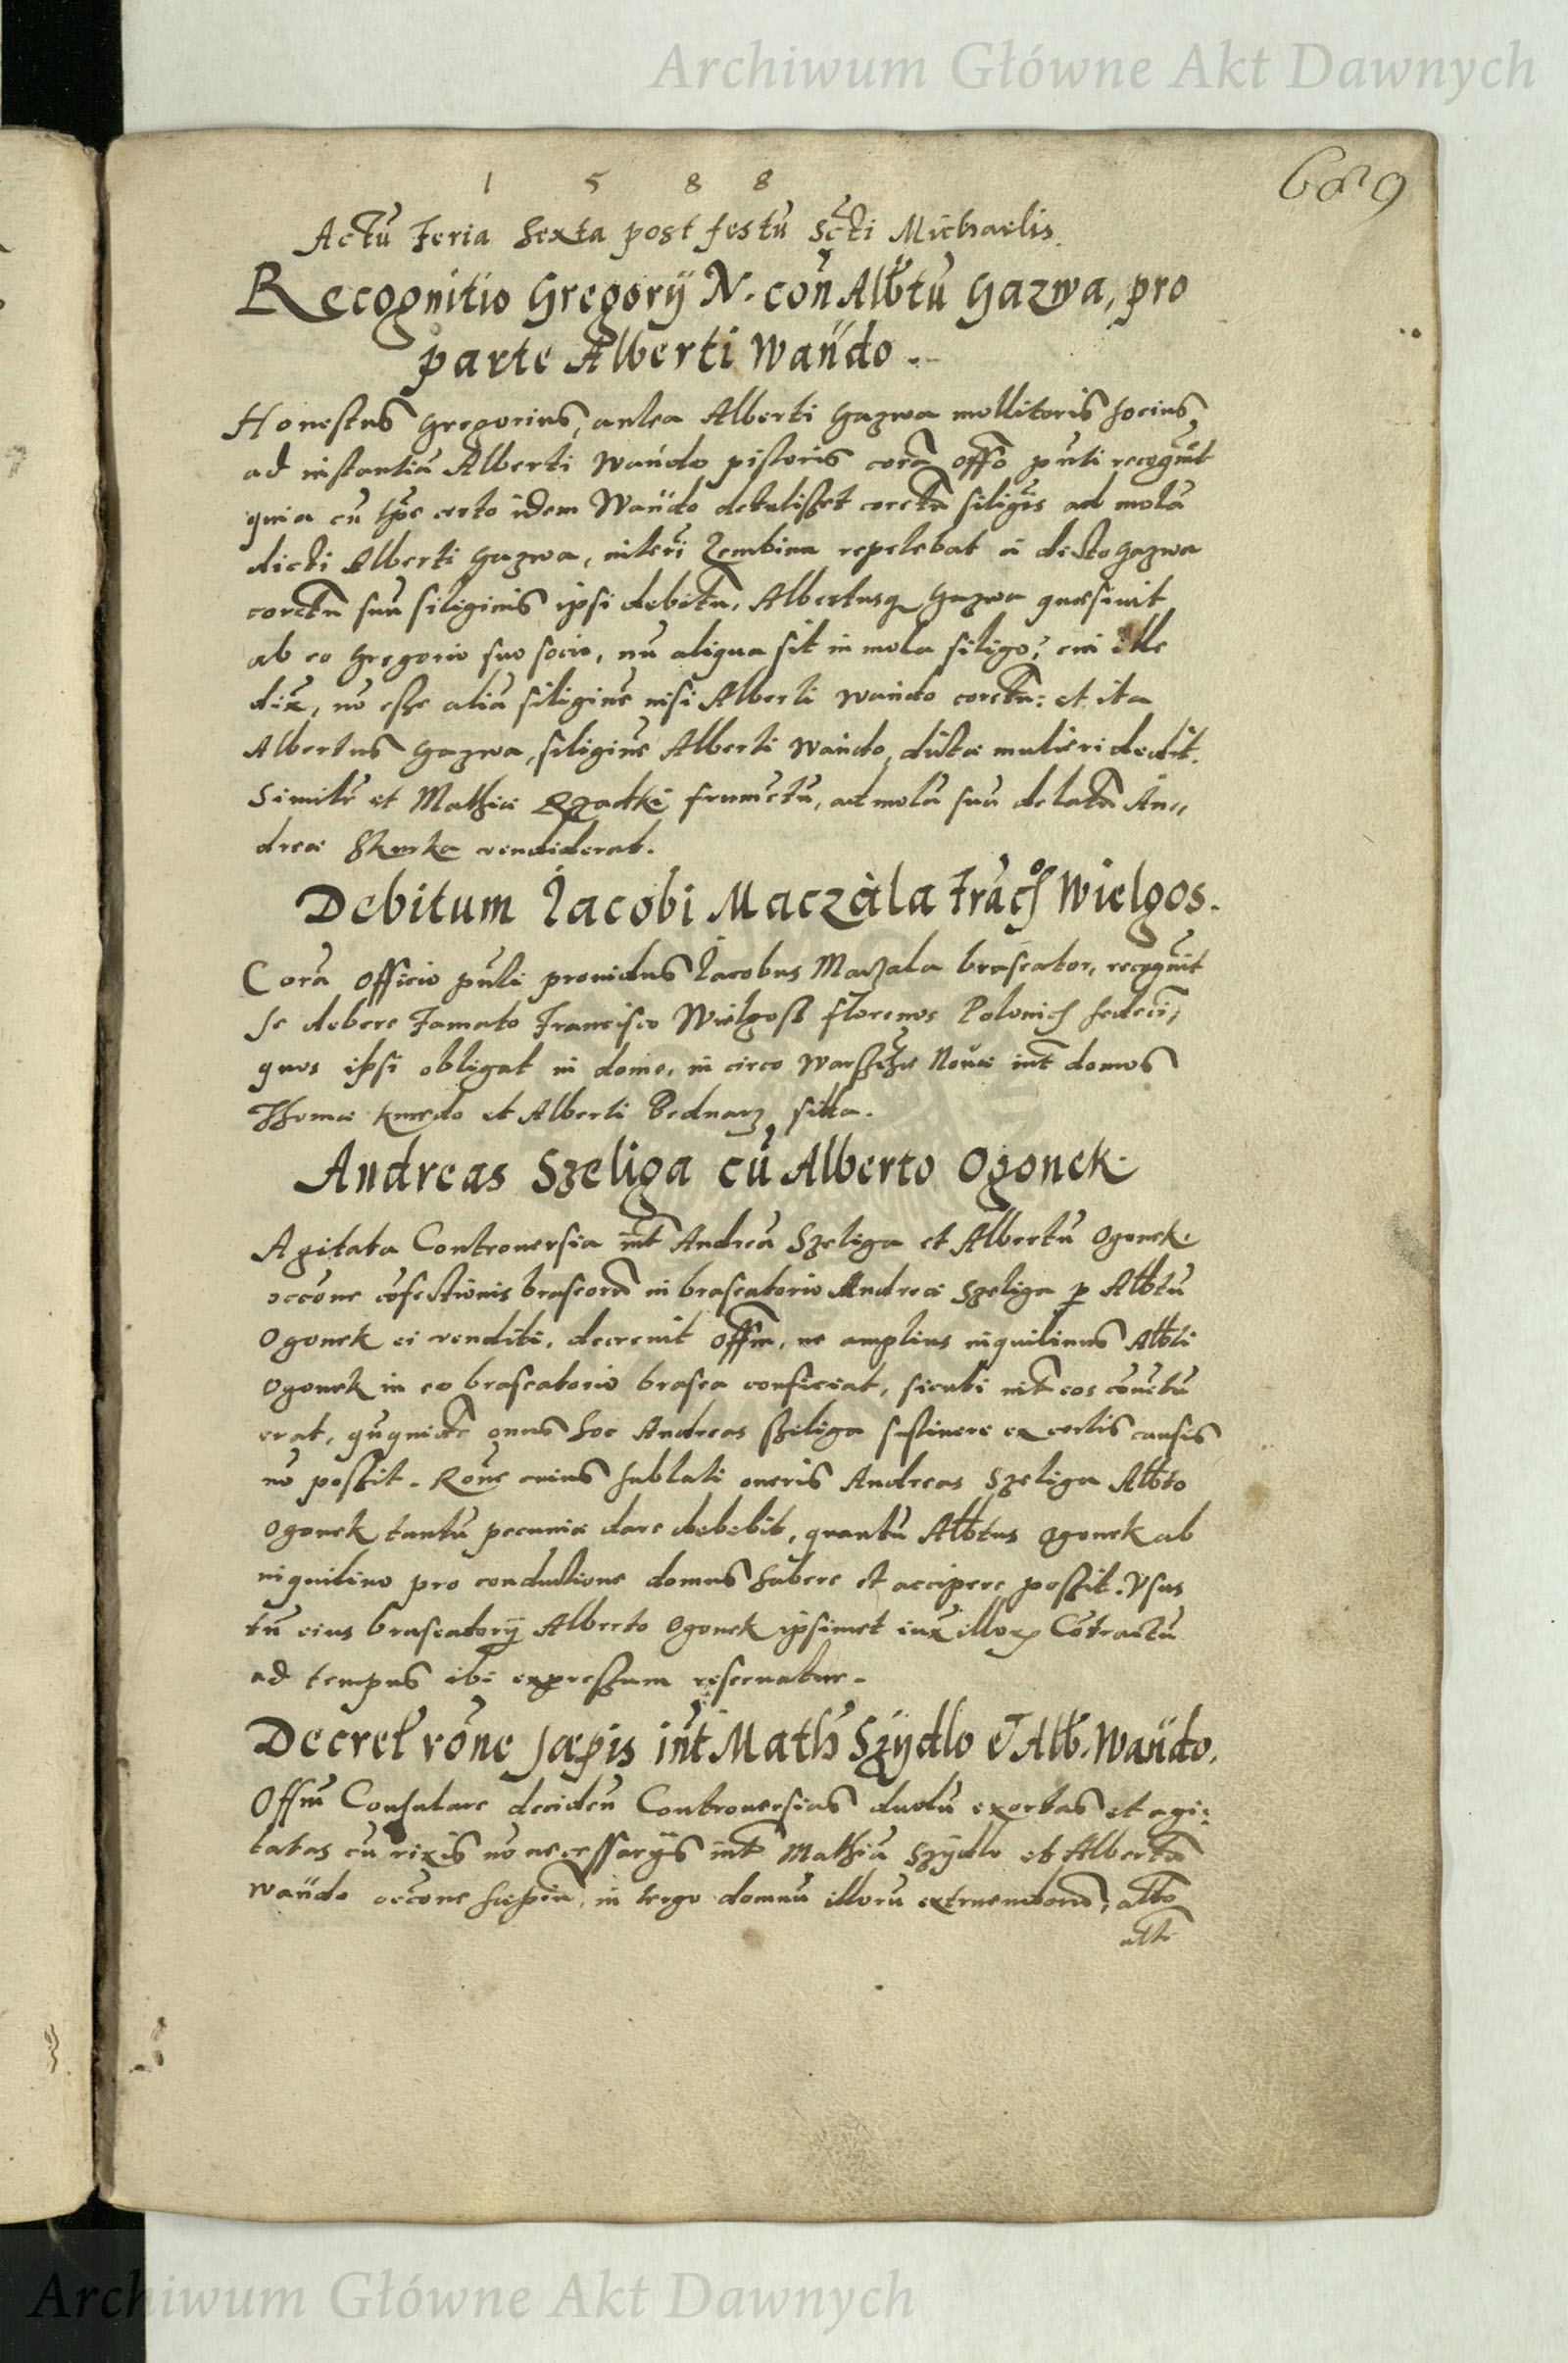 Archiwum Główne Akt Dawnych
689
1 5 8 8
Actū Feria Sexta post festū Scti Michaelis.
Recognitio Gregorÿ N. con Albtū Gazwa, pro
parte Alberti Wańdo.
Honestus Gregorius, antea Alberti Gazwa mollitoris socius,
ad instantiā Alberti Wańdo pistoris corā offo pnti recognit
quia cū certo idem Wańdo detulisset coretū siligis ad molā
dicti Alberti Gazwa, interi Zembina repetebat a dicto Gazwa
coretū suū siliginis ipsi debitū, Albertusq Gazwa quæsiuit
ab eo Gregorio suo socio, nū aliqua sit in mola siligo, cui ille
dix, nō esse aliā siliginē nisi Alberti Wańdo coretū: et ita
Albertus Gazwa, siliginē Alberti Wańdo, dictæ mulieri dedit.
Similr et Mathiæ Rzadki frumētū, ad molā suā delatū An,,
dreæ Skurka vendiderat.
Debitum Jacobi Maczàla Fracō Wielgos.
Corā Officio pnti prouidus Jacobus Maczala braseator, recognit
se debere Famato Francisco Wielgosz florenos Polonich sedeci,
quos ipsi obligat in domo, in circo Warszhæ Nouæ int domos
Thomæ Kmedo et Alberti Bednarz sitta.
Andreas Szeliga cū Alberto Ogonek.
Agitata Controuersia int Andreā Szeliga et Albertū Ogonek.
occōne cōfectionis braseorū in braseatorio Andreæ Szeliga p Albtū
Ogonek ei venditi, decreuit Offm, ne amplius inquilinus Albti
Ogonek in eo braseatorio brasea conficiat, sicuti int eos cōuētū
erat, quonia onus hoc Andreas Szeliga sustinere ex certis causis
nō possit. Rōne cuius sublati oneris Andreas Szeliga Albto
Ogonek tantū pecuniæ dare debebit, quantū Albtus Ogonek ab
inquilino pro conductione domus habere et accipere possit. Vsus
tn eius braseatorÿ Alberto Ogonek ipsimet iux illorz Cōtractū
ad tempus ibi expressum reseruatur.
Decret rōne sæpis int Math Szÿdlo et Alb. Wańdo.
Offm Consulare deciden Controuersias dudū exortas et agi:
tatas cū rixis nō necessarÿs int Mathiā Szÿdlo et Albertū
Wańdo occōne sæpiū, in tergo domuū illorū extruendorū, albo
alt
Archiwum Główne Akt Dawnych